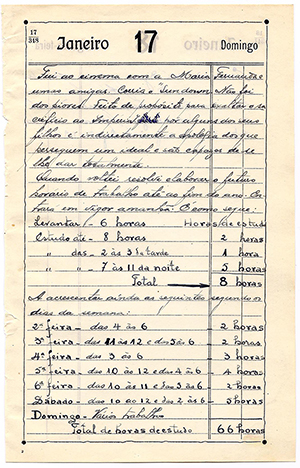 17
348
Janeiro 17 Domingo
Fui ao cinema com a Maria Fernanda e
umas amigas. Correio e Não foi
dos piores. Feito de propósito para exaltar o sa-
crifício ao Império por alguns dos seus
filhos e indirectamente a apologia dos que
perseguem um ideal e são capazes de
lhe dar totalmente.
Quando voltei resolvi elaborar o futuro
horario de trabalho até ao fim do ano. En-
trará em vigor amanhã. É como segue:
Levantar - 6 horas Horas de estudo
Estudo até - 8 horas 2 horas
" das 2 às 3 da tarde 1 hora
" " 7 às 11 da noite 5 horas
Total 8 horas
A acrescentar ainda as seguintes segundo os
dias da semana:
2ª feira - das 4 às 6 2 horas
3ª feira - das 11 às 12 e das 3 às 6 horas
4ª feira - das 3 às 6 3 horas
5ª feira - das 10 às 12 e das 4 às 6 4 horas
6ª feira - das 10 às 11 e das 3 às 6 horas
Sábado - das 10 ao 12 e das 2 às 6 horas
Domingo - Vários trabalhos
Total de horas de estudo 66 horas